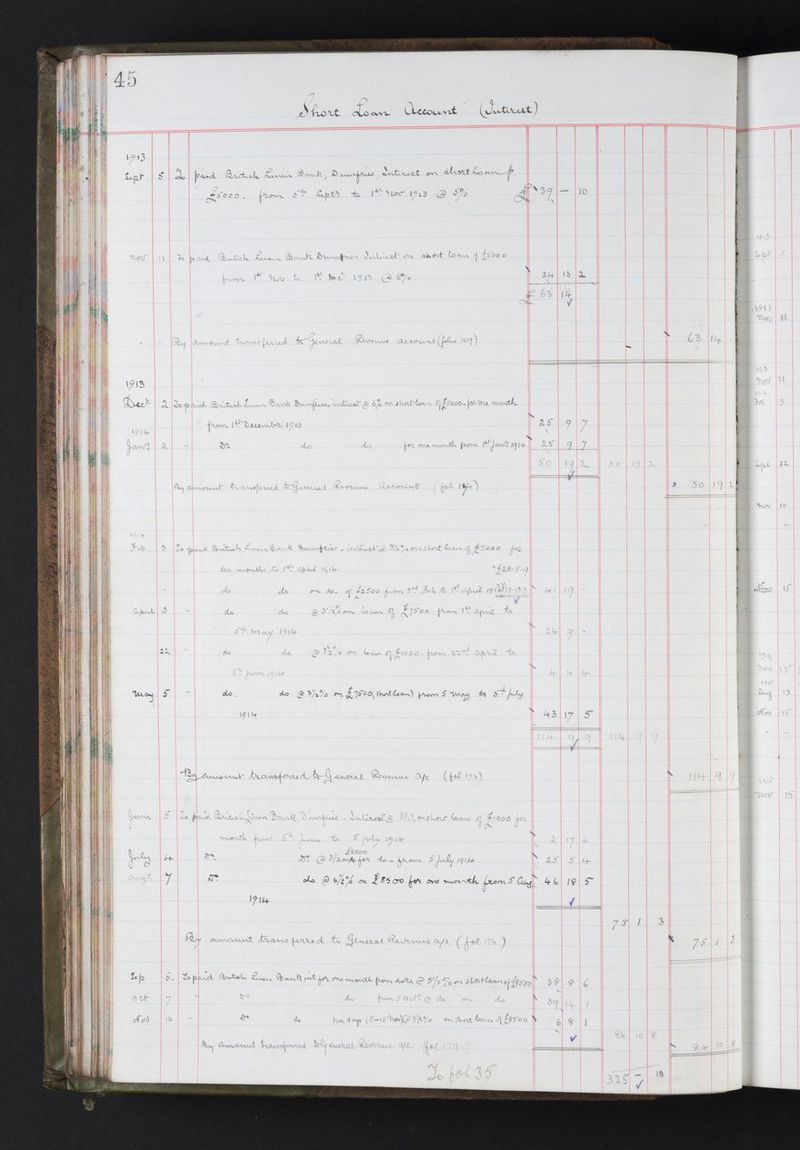 45
Short Loan Account (Interest)
1913
Sept 5 To paid British Linen Bank, Dumfries, Interest on short Loan of
£5000. from 5th Septr to 1st Nov 1913 @ 5% £ 39 — 10
Nov 11 To paid British Linen Bank Dumfries Interest on short loan of £5000
from 1st Nov to 1st Decr 1913 @ 24 13 2
£ 63 14
- - By amount transferred to General Revenue account (folio 109) 63 14 -
1913
Decr 2 To paid British Linen Bank Dumfries interest @ 6% on short loan of £5000 - for one month
from 1st December 1913 25 9 7
1914
Jany 2 " Do do do for one month from 1st Jany 1914 25 9 7
50 19 2 50 19 2
By amount transferred to General Revenue Account (fol ) 50 19 2
1914
Feb 3 To paid British Linen Bank Dumfries - interest @ 3½% on short loan of £5000 for
two months to 1st April 1914 £28-5-9
- - do do on do. of £2500 from 3rd Feb to 1st April 1914 £13-13-3 41 19 -
April 3 " do do @ 3½% on loan of £7500 from 1st April to
5th May 1914 24 9 -
22 " do do @ 3½% on loan of £1000 from 22nd April to
5th June 1914 4 4 4
May 5 " do. do @ 3½% on £7500 (short loan) from 5 May to 5th July
1914 43 17 5
114 9 9 114 9 9
By amount transferred to General Revenue a/c (fol 174) 114 9 9
June 5 To paid British Linen Bank, Dumfries - Interest @ 3½% on short loan of £1000 for
month from 5th June to 5 July 1914 2 17 6
£8500
July 4 Do Do @ 3½% for do - from 5 July 1914 25 5 4
Augt 7 Do do @ 6½% on £8500 for one month from 5 Aug. 46 18 5
1914
75 1 3
By amount transferred to General Revenue a/c (fol 174) 75 1 3
Sep 5. To paid British Linen Bank int for one month from date @ 5½% on short loan of £8500 38 8 6
Oct 7 " Do do from 5 Oct @ do on do 39 14 1
Nov 10 " Do do five days (5-10 Nov) @ 5½% on short loan of £8500 6 8 1
84 10 8
By amount transferred to General Revenue a/c (fol 174) 84 10 8
To fol 35 325 - 10
1913
Sept 5
1913
Nov 11
1913
Nov 11
3
April 22
Nov 10
Nov 15
Nov 15
Aug 13
Nov 15
1915
Nov 15